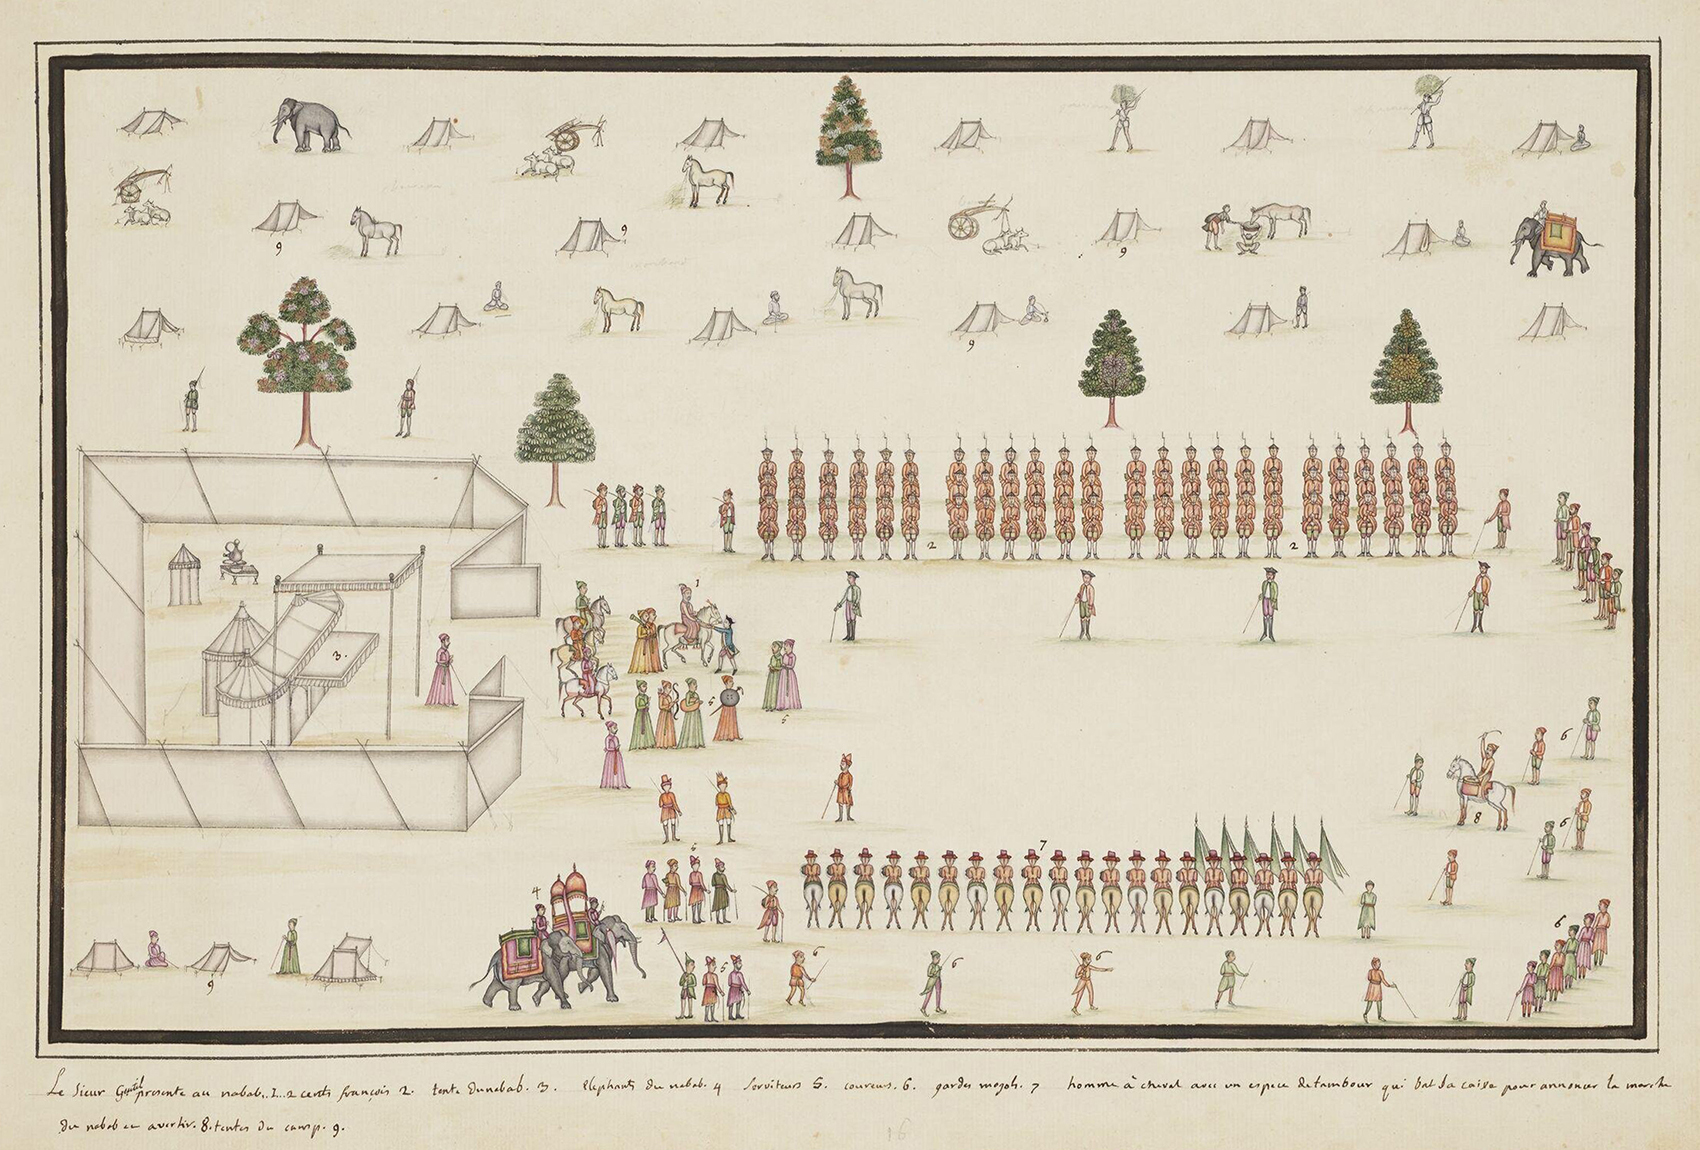 9
9
9
9
1
2
2
3.
5
5
6
6
8
7
4
5
6
6
6
6
5
9
Le Sieur Gentil presente au nabab..1..2 cents françois 2. tente du nabab. 3. Elephants du nabab. 4 Serviteurs 5. coureurs. 6. gardes mogols. 7 homme à cheval avec un espece de tambour qui bat sa caisse pour annoncer la marche
du nabab en avertir. 8. tentes du camp. 9.
16